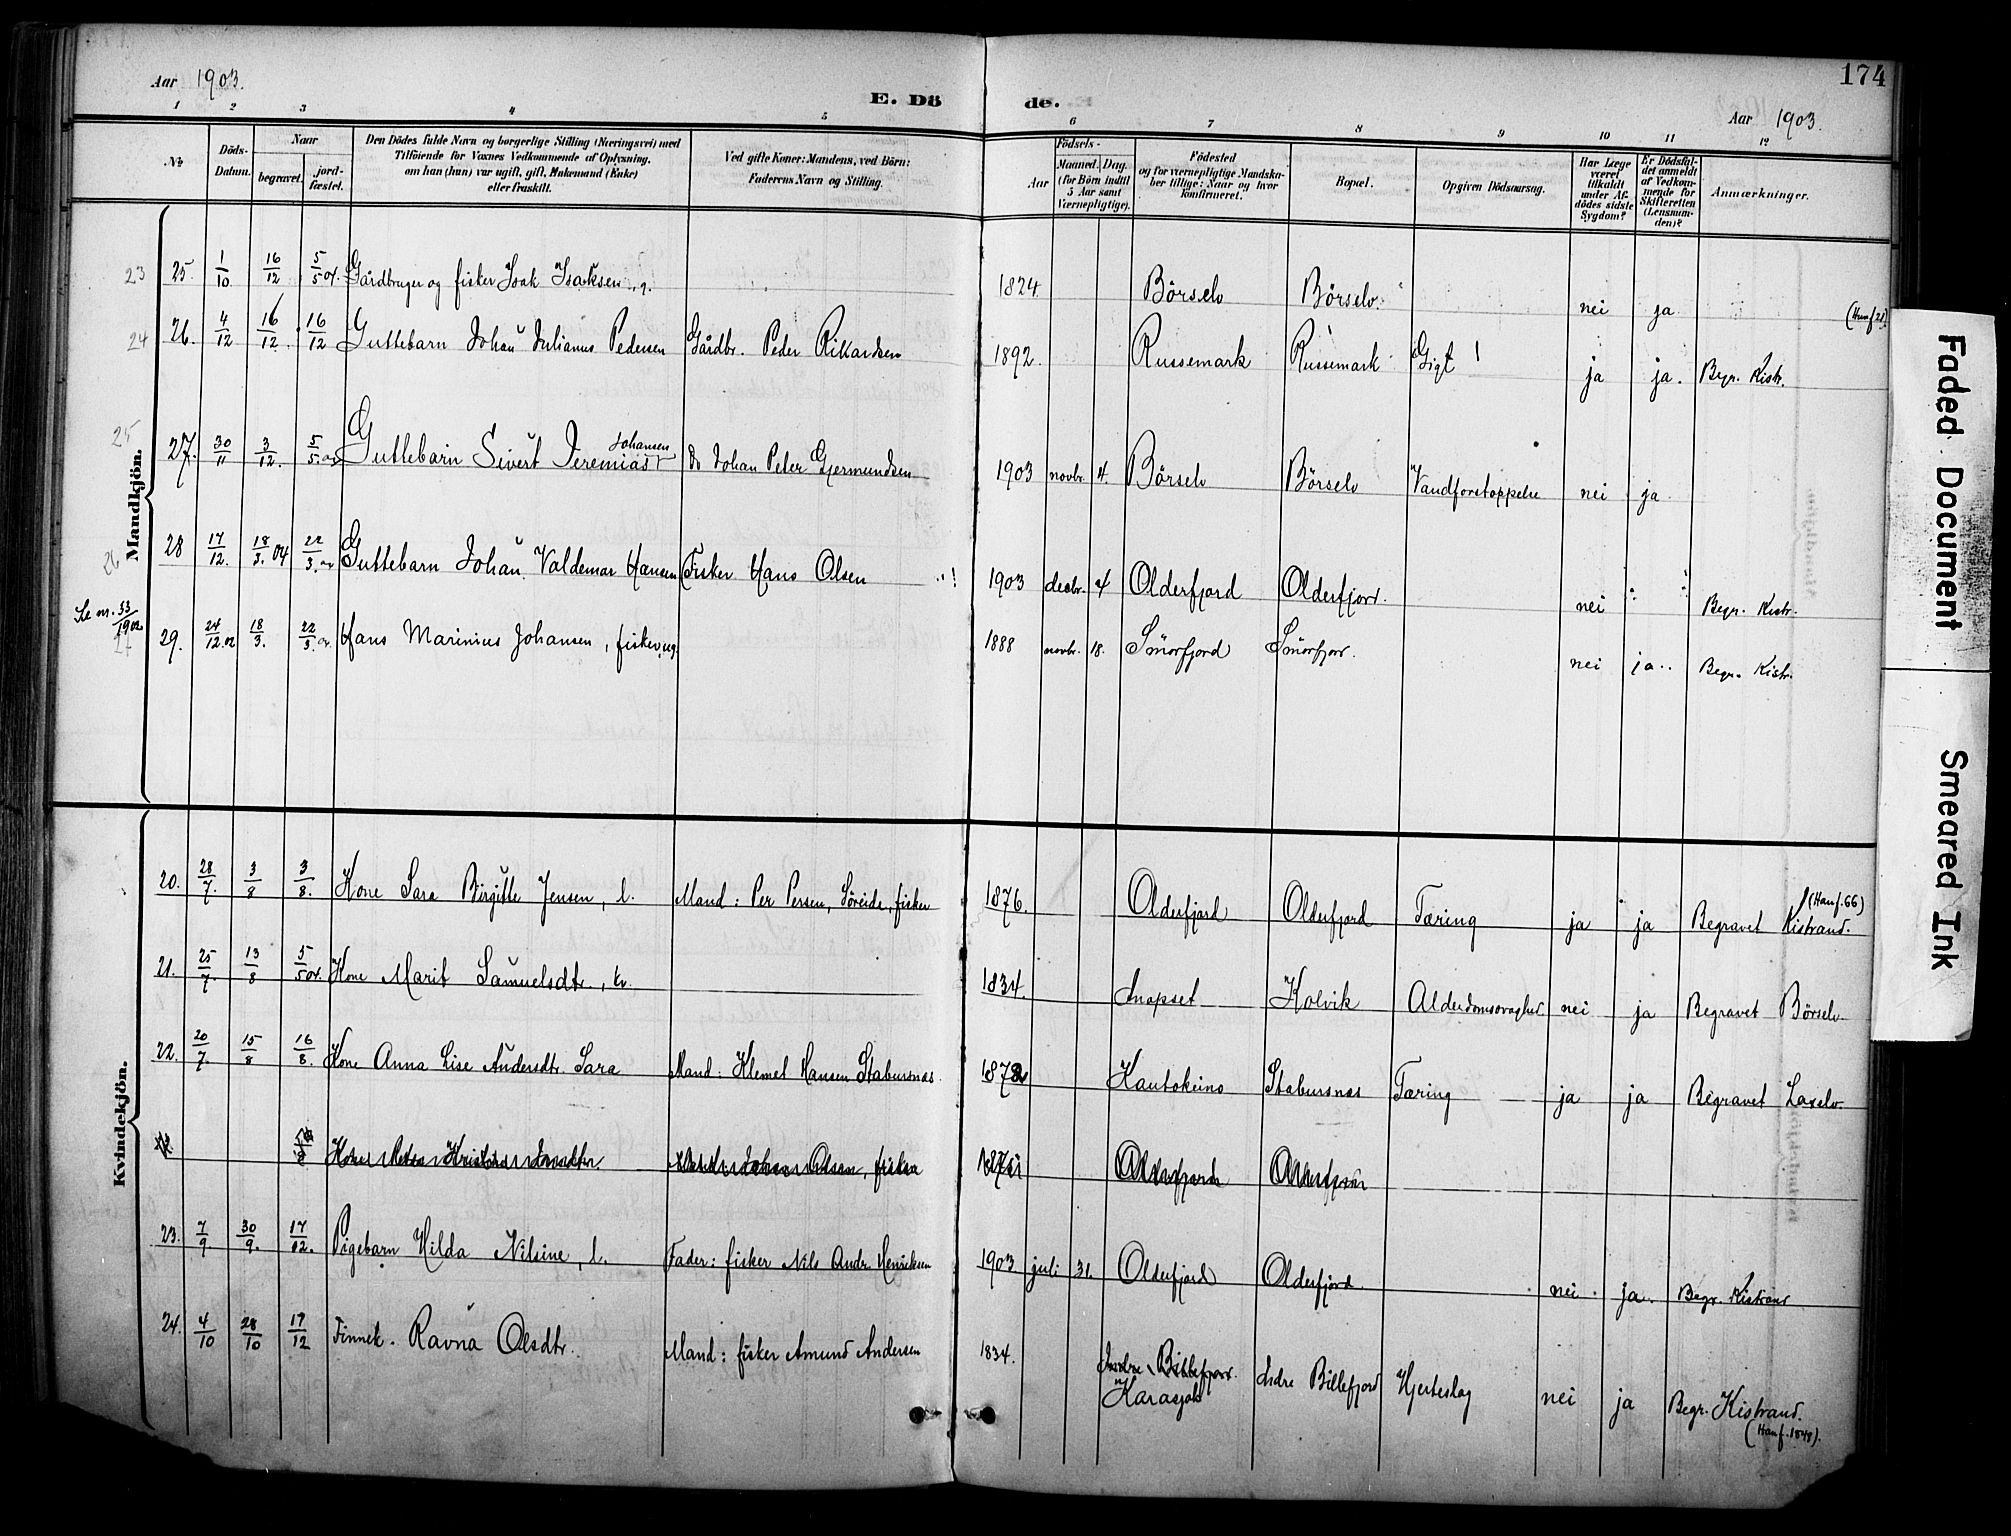 174
Aar 1903.
E. Dö de.
Aar 1903.
1 2 3 4 5 6 7 8 9 10 11 12
No
Döds-Datum.
Naar
begravet.
jord-fæstet.
Den Dödes fulde Navn og borgerlige Stilling (Næringsvei) med
Tilföiende for Voxnes Vedkommende af Oplysning,
om han (hun) var ugift, gift, Enkemand (Enke)
eller fraskilt.
Ved gifte Koner: Mandens, ved Börn:
Faderens Navn og Stilling.
Födsels-
Aar
Maaned.
Dag.
(for Börn indtil
5 Aar samt
Værnepligtige).
Födested
og for værnepligtige Mandska-
ber tillige: Naar og hvor
konfirmeret.
Bopæl.
Opgiven Dödsaarsag.
Har Læge
været
tilkaldt
under Af-
dödes sidste
Sygdom?
Er Dödsfal-
det anmeldt
af Vedkom-
mende for
Skifteretten
(Lensman-
den)?
Anmærkninger.
Mandkjön.
23 25 1/10 16/12 5/5 04. Gårdbruger og fisker Isak Isaksen 1824. Börselv Börselv. nei ja
24 26. 4/12 16/12. 16/12 Guttebarn Johan Julianus Pedersen Gårdbr. Peder Rikardsen 1892. Russemark Russemark Gigt ja ja. Begr. Kistr.
25 27. 30/11 3/12. 5/5. Guttebarn Sivert Jeremias Johansen Do Johan Peter Gjermundsen 1903 novbr. 4. Börselv Börselv Vandforstoppelse nei ja
26 28 17/12. 18/3. 04 22/3. Guttebarn Johan Valdemar Hansen Fisker Hans Olsen 1903 decbr. 4 Olderfjord Olderfjord. nei " " Begr. Kistr.
Se nr. 33/1902
27 29. 24/12 02 18/3. 22/3. Hans Marinius Johansen, fisker, ug. 1888 novbr. 18. Smörfjord Smörfjor. nei ja Begr. Kistr.
Kvindekjön.
20. 28/7. 3/8 3/8. Kone Sara Birgitte Jensen, l. Mand: Per Persen, Söreide, fisker 1876. Olderfjord Olderfjord Tæring ja ja Begravet Kistrand. (Hamf. 66)
21. 25/7. 13/8 5/5 04. Kone Marit Samuelsdtr., kv. 1834. Kolvik Alderdomssvaghed nei ja Begravet Börselv
22. 20/7. 15/8 16/8. Kone Anna Lise Andersdtr. Sara Mand: Klemet Hansen Stabursnas. 1872 Kautokeino Stabursnas Tæring ja ja Begravet Laxelv.
Kone fisker Olderfjord Olderfjord
23. 7/9. 30/9. 17/12. Pigebarn Hilda Nilsine, l. Fader: fisker Nils Andr. Henriksen 1903 juli 31. Olderfjord Olderfjord nei ja. Begr. Kistrand
24. 4/10 28/10 17/12 Finnek. Ravna Olsdtr. Mand: fisker Amund Andersen 1834. Indre Billefjord. Karasjok Indre Billefjord Hjerteslag nei ja Begr. Kistrand.
(Hamf. 1848).
Faded Document
Smeared Ink